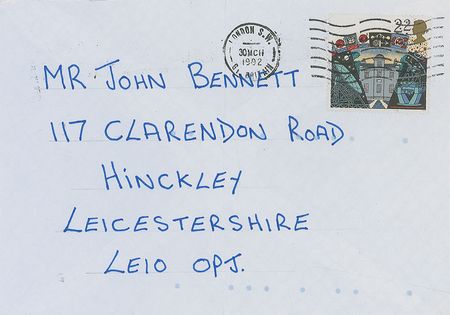 LONDON S.W.
30 MCH
1992
22
MR JOHN BENNETT
117 CLARENDON ROAD
HINCKLEY
LEICESTERSHIRE
LE10 OPJ.